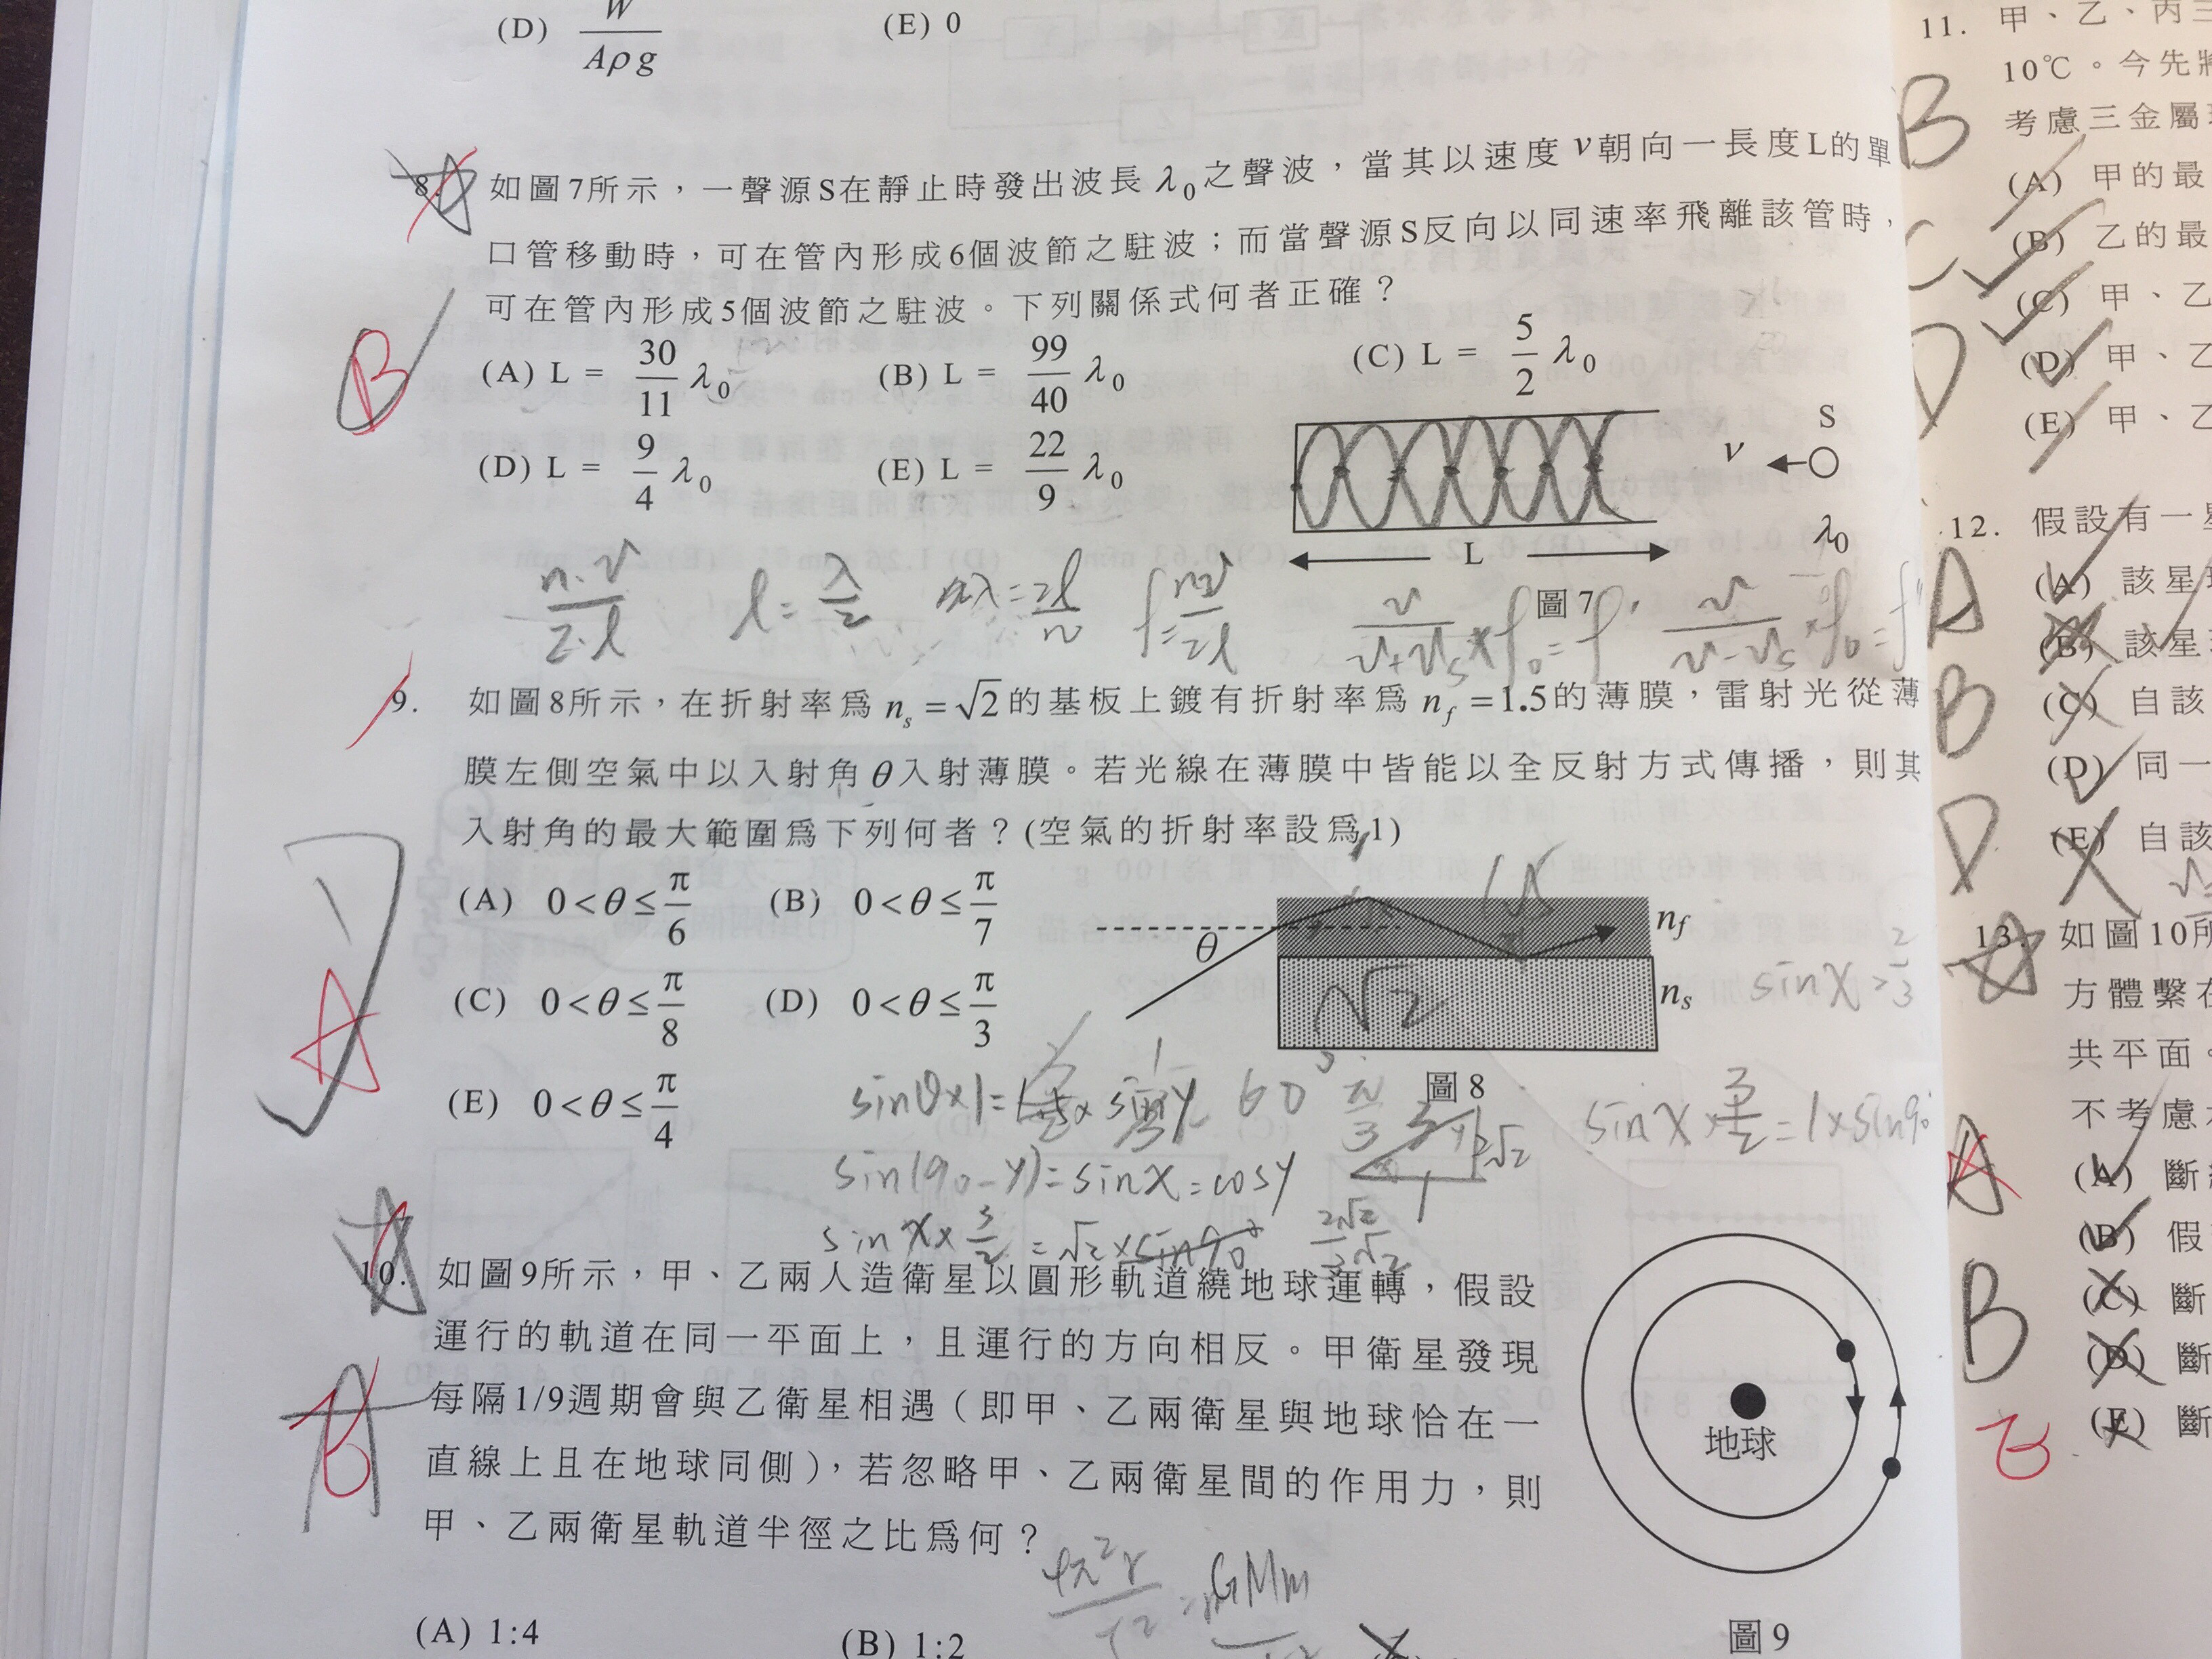 (D) W/Aρg (E) 0
8. 如圖7所示，一聲源S在靜止時發出波長 λ₀ 之聲波，當其以速度 v 朝向一長度L的單
口管移動時，可在管內形成6個波節之駐波；而當聲源S反向以同速率飛離該管時，
可在管內形成5個波節之駐波。下列關係式何者正確？
B
(A) L = 30/11 λ₀ (B) L = 99/40 λ₀ (C) L = 5/2 λ₀
(D) L = 9/4 λ₀ (E) L = 22/9 λ₀
v S
λ₀
L
圖7
n·v/2·l l = λ/2 λ = 2l/n f = nv/2l v/(v+vs) × f₀ = f' v/(v-vs) × f₀ = f''
9. 如圖8所示，在折射率為 nₛ = √2 的基板上鍍有折射率為 n_f = 1.5 的薄膜，雷射光從薄
膜左側空氣中以入射角 θ 入射薄膜。若光線在薄膜中皆能以全反射方式傳播，則其
入射角的最大範圍為下列何者？(空氣的折射率設為1)
(A) 0 < θ ≤ π/6 (B) 0 < θ ≤ π/7
(C) 0 < θ ≤ π/8 (D) 0 < θ ≤ π/3
(E) 0 < θ ≤ π/4
A
θ
n_f
nₛ
√2
圖8
sin x > 2/3
60° π/3
sin x × 3/2 = 1 × sin 90°
sin(90-y) = sin x = cos y
sin x × 3/2 = √2 × sin 90°
2√2/3
10. 如圖9所示，甲、乙兩人造衛星以圓形軌道繞地球運轉，假設
運行的軌道在同一平面上，且運行的方向相反。甲衛星發現
每隔1/9週期會與乙衛星相遇（即甲、乙兩衛星與地球恰在一
直線上且在地球同側），若忽略甲、乙兩衛星間的作用力，則
甲、乙兩衛星軌道半徑之比為何？
A
B
地球
圖9
(A) 1:4 (B) 1:2
11. 甲、乙、丙三
10℃。今先將
考慮三金屬
B
(A) 甲的最
(B) 乙的最
C
(C) 甲、乙
D
(D) 甲、乙
(E) 甲、乙
12. 假設有一星
A
(A) 該星球
(B) 該星
B
(C) 自該
(D) 同一
D
(E) 自該
13. 如圖10所
方體繫在
共平面。
不考慮
A
(A) 斷
(B) 假
B
(C) 斷
(D) 斷
(E) 斷